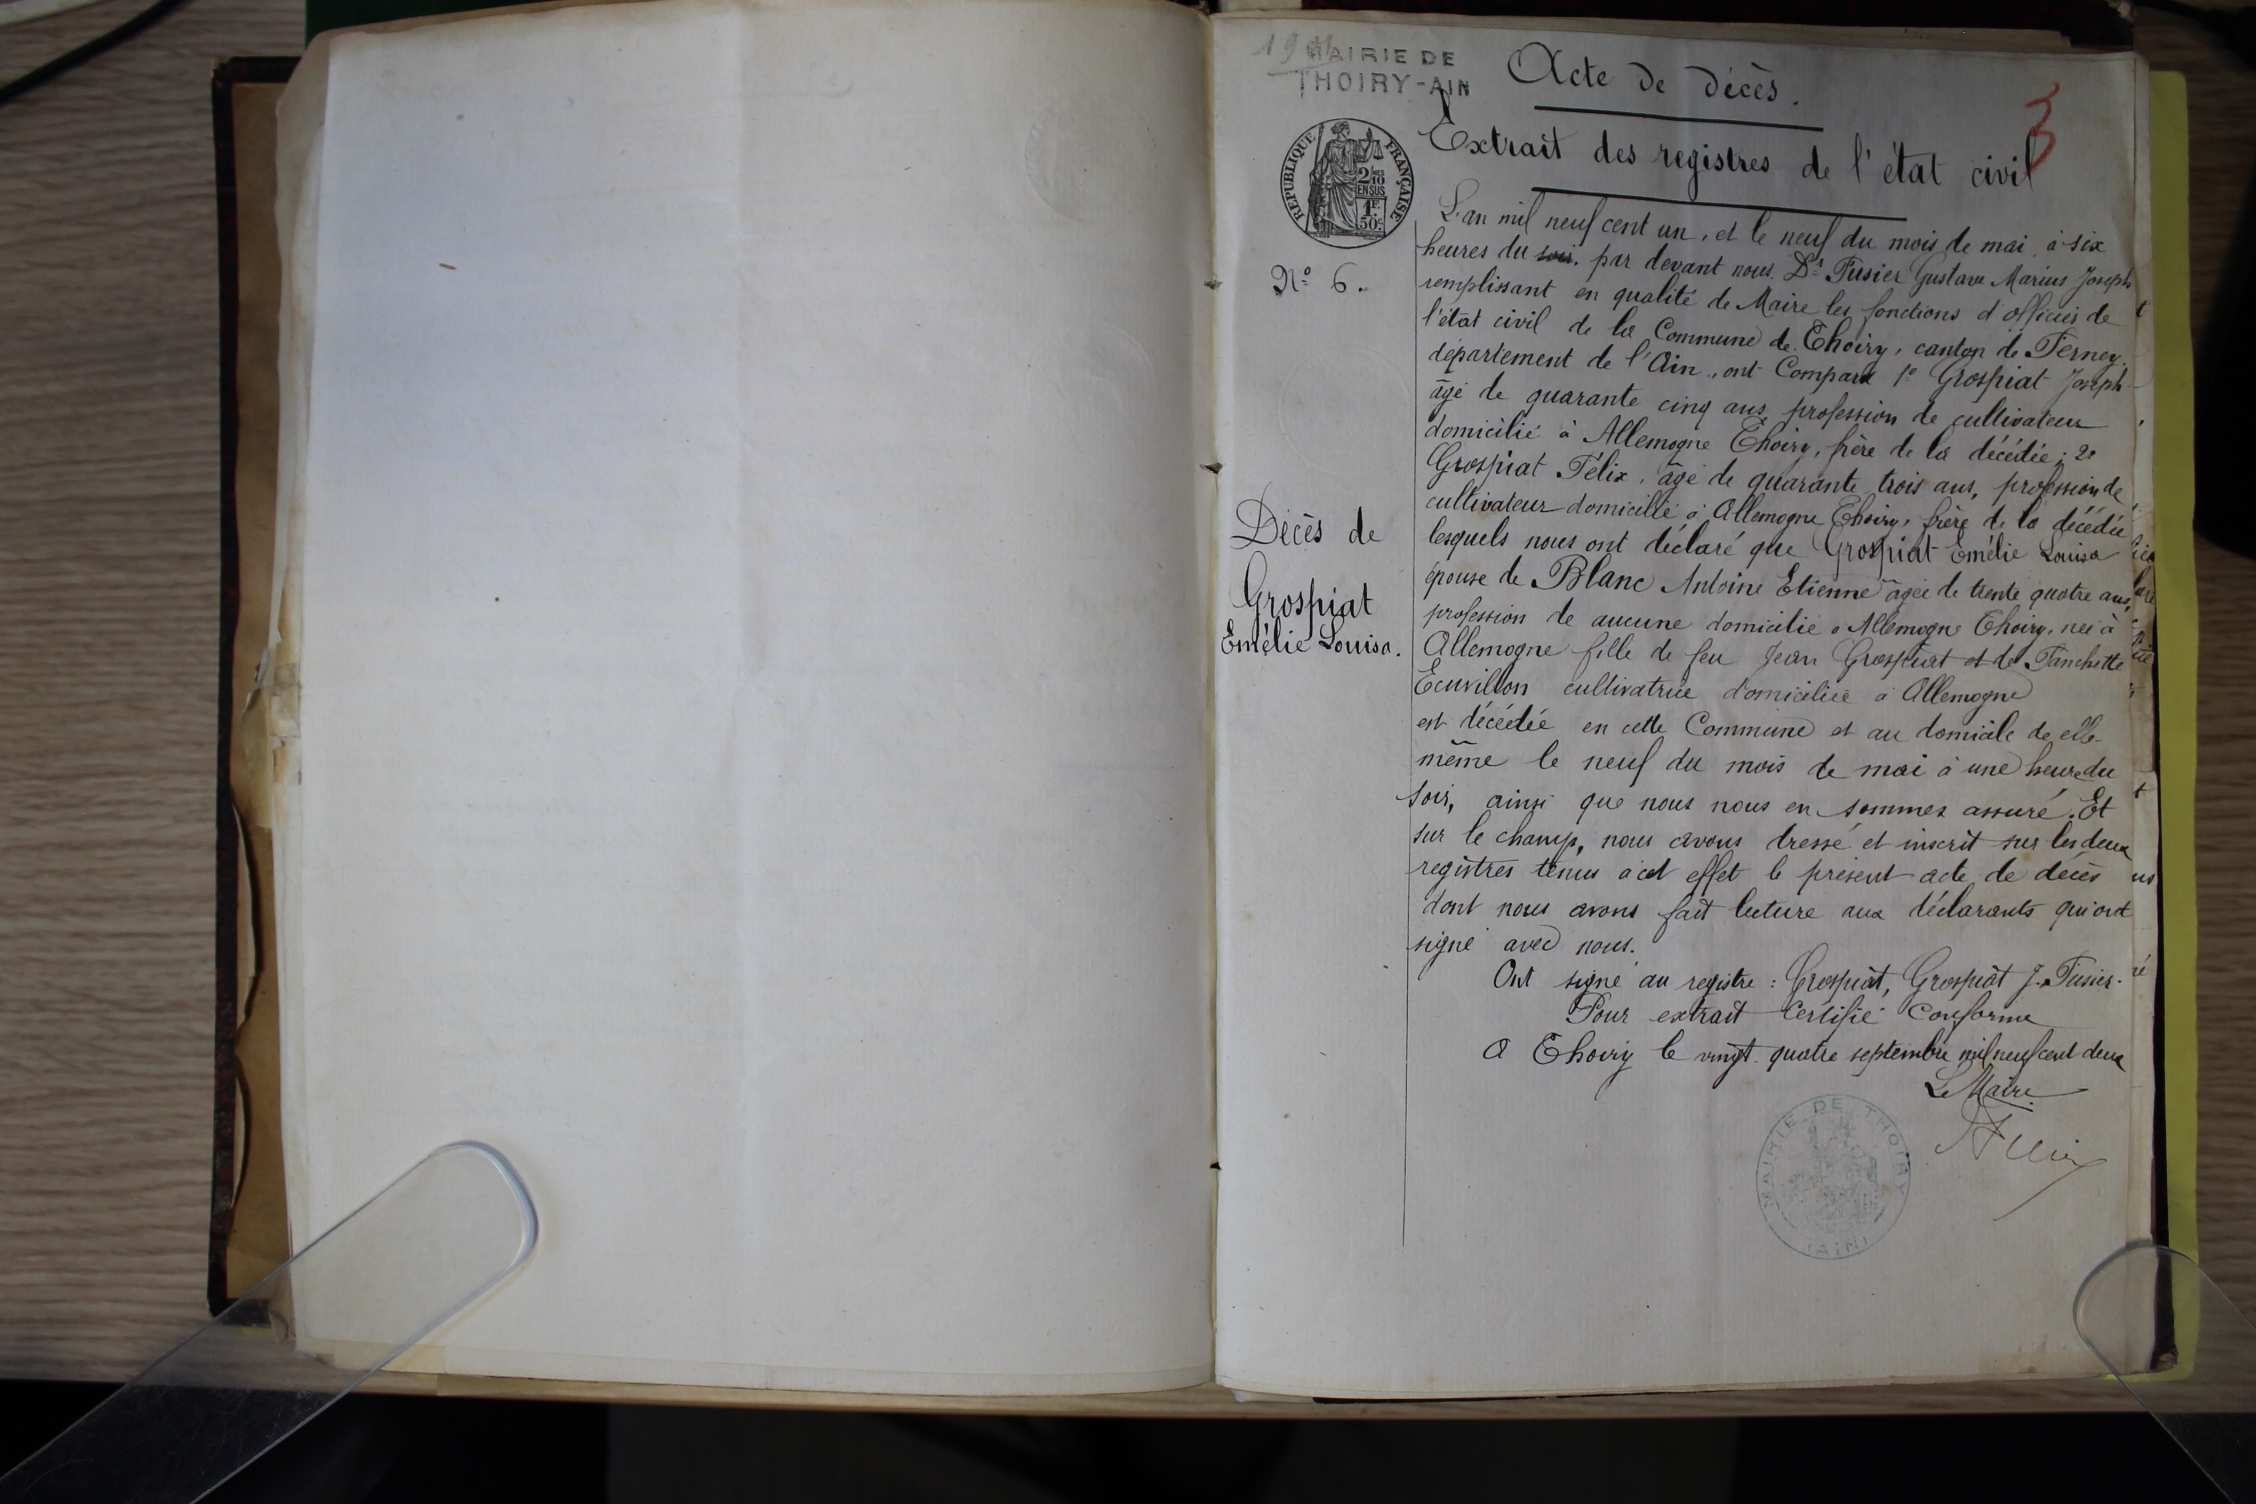 MAIRIE DE
THOIRY-AIN
Acte de décès.
3
Extrait des registres de l'état civil
RÉPUBLIQUE FRANÇAISE
2/10
EN SUS
1F.
50c
N° 6.
L'an mil neuf cent un, et le neuf du mois de mai, à six
heures du soir, par devant nous. Dr Fusier Gustave Marius Joseph
remplissant en qualité de Maire les fonctions d'officier de
l'état civil de la Commune de Thoiry, canton de Ferney.
département de l'Ain, ont Comparu 1° Grospiat Joseph
âgé de quarante cinq ans profession de cultivateur
domicilié à Allemogne Thoiry, frère de la décédée; 2°
Grospiat Félix, âgé de quarante trois ans, profession de
cultivateur domicilié à Allemogne Thoiry, frère de la décédée
lesquels nous ont déclaré que Grospiat Emélie Louisa
épouse de Blanc Antoine Etienne âgée de trente quatre ans,
profession de aucune domicilié à Allemogne Thoiry, née à
Allemogne fille de feu Jean Grospiat et de Fanchette
Ecuvillon cultivatrice domiciliée à Allemogne
est décédée en cette Commune et au domicile de elle-
même le neuf du mois de mai à une heure du
soir, ainsi que nous nous en sommes assuré. Et
sur le champ, nous avons dressé et inscrit sur les deux
registres tenus à cet effet le présent acte de décès
dont nous avons fait lecture aux déclarants qui ont
signé avec nous.
Décès de
Grospiat
Emélie Louisa.
Ont signé au registre: Grospiat, Grospiat J. Fusier.
Pour extrait Certifié Conforme
A Thoiry le vingt-quatre septembre mil neuf cent deux
Le Maire
MAIRIE DE THOIRY
(AIN)